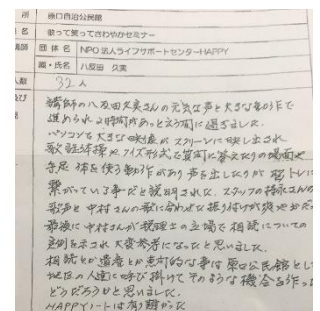 所 原口自治公民館
名 歌って笑ってさわやかセミナー
講師 団体名 NPO法人ライフサポートセンターHAPPY
職・氏名 八反田 久実
人数 32人
及び
講師の八反田久実さんの元気な声と大きな動作で
進められ2時間があっと言う間に過ぎました。
パソコンで大きな映像がスクリーンに映し出され
歌謡体操やクイズ形式で質問に答えたりの場面や
手足体を使う動作があり声を出したりが脳トレに
繋がっている事だと説明された。スタッフの さんの
歌声と中村さんの歌に合わせた振り付けが
最後に中村さんが税理士の立場で相続についての
実例を示され大変参考になったと思いました。
相続とか遺産とか 的な事は原口公民館とし
地区の人達に呼び掛けてそのような機会を作っ
どうだろうかと思いました。
HAPPYノートは有難かった